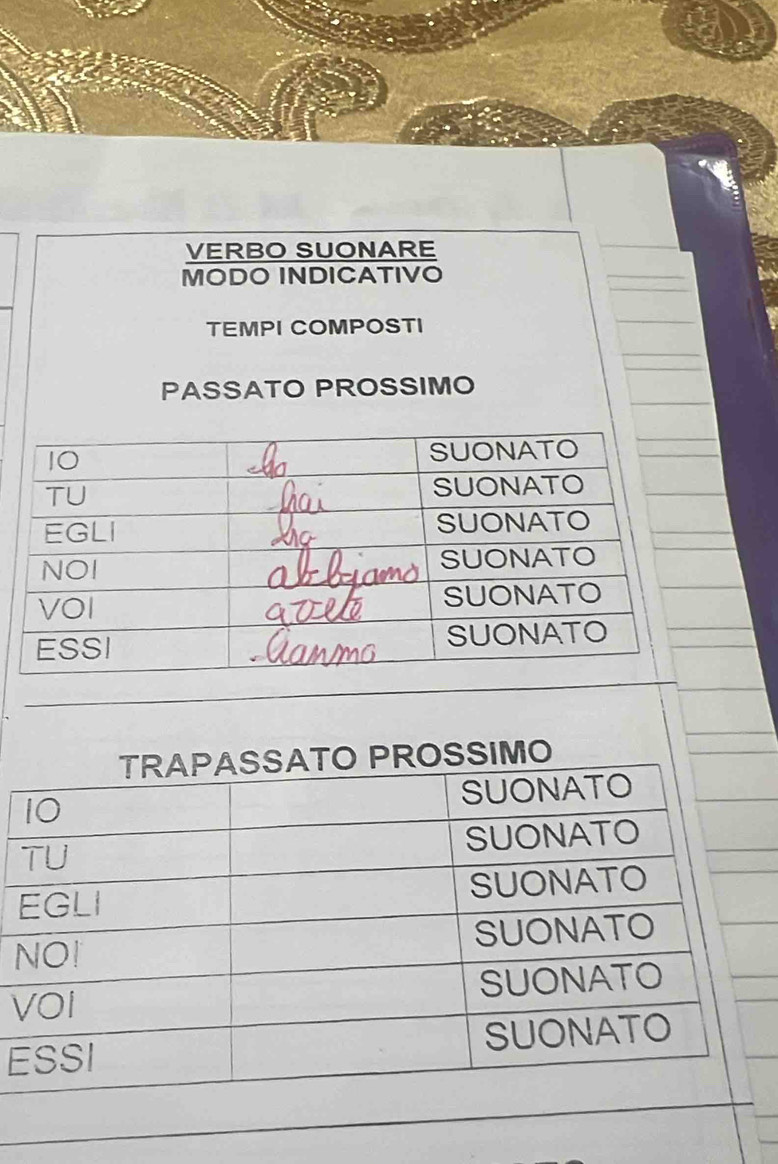 VERBO SUONARE
MODO INDICATIVO
TEMPI COMPOSTI
PASSATO PROSSIMO
IO ho SUONATO
TU hai SUONATO
EGLI ha SUONATO
NOI abbiamo SUONATO
VOI avete SUONATO
ESSI hanmo SUONATO
TRAPASSATO PROSSIMO
IO SUONATO
TU SUONATO
EGLI SUONATO
NOI SUONATO
VOI SUONATO
ESSI SUONATO